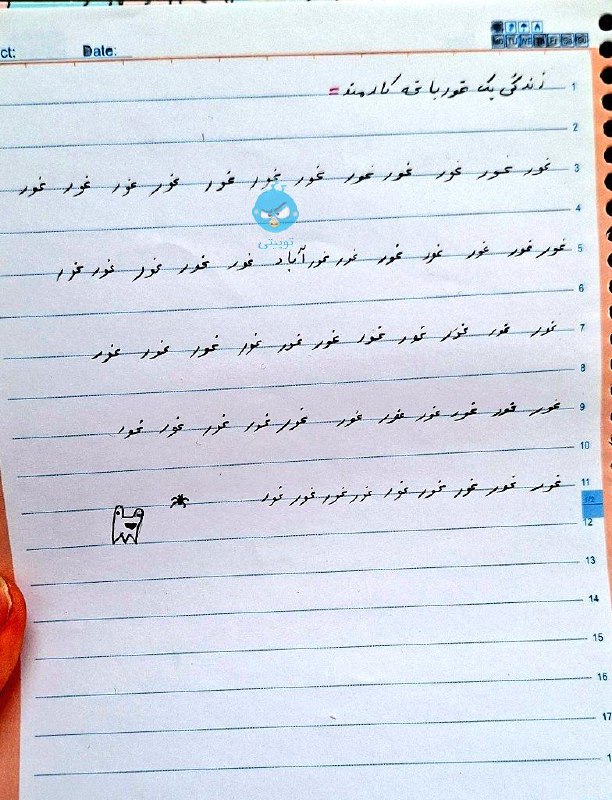 ct: Date:
1 زندگی یک قورباغه کارمند =
2
3 غور غور غور غور غور غور غور غور غور غور غور غور
4
توییتی
5 غور غور غور غور غور غور غورآباد غور غور غور غور غور
6
7 غور غور غور غور غور غور غور غور غور غور غور
8
9 غور غور غور غور غور غور غور غور غور غور غور
10
11 غور غور غور غور غور غور غور غور غور
12
13
14
15
16
17